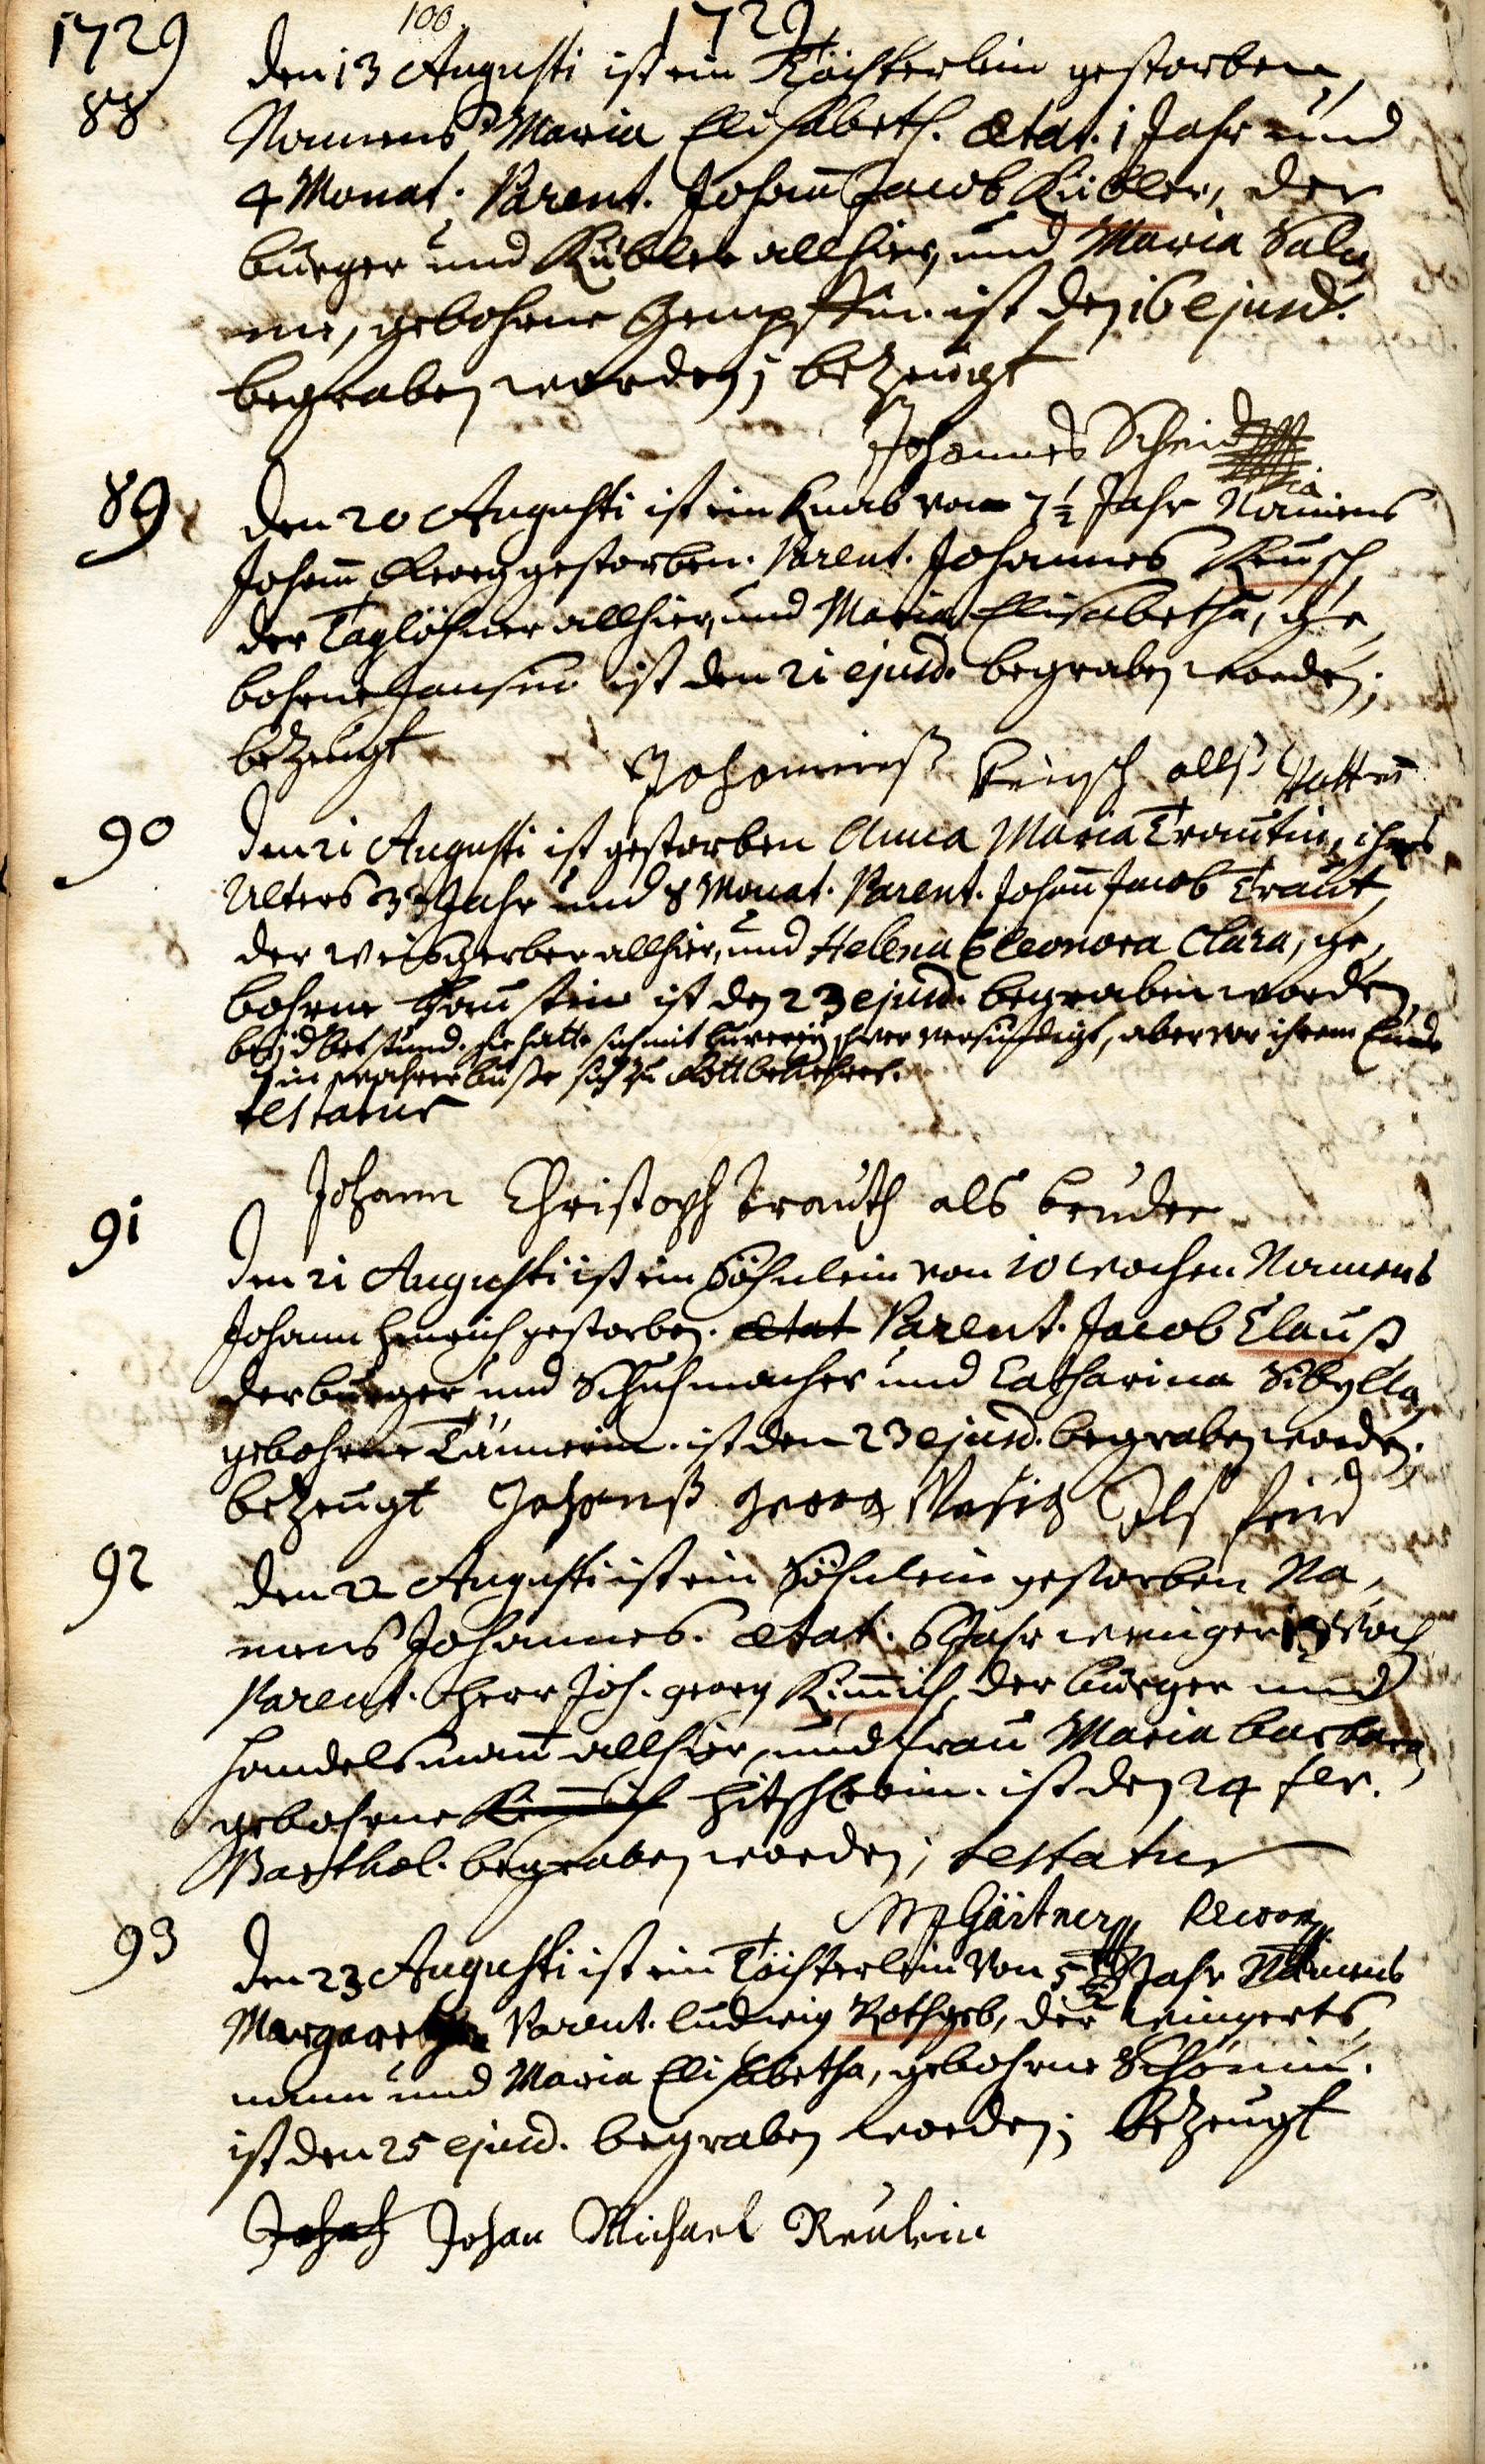 1729 100. 1729
88 den 13 Augusti ist ein Töchterlein gestorben,
Namens Maria Elisabeth. ætat. 1 Jahr und
4 Monat. Parent. Johann Jacob Kübler, der
burger und Kübler allhier, und Maria Salo
me, gebohrne ist den 16 ejusd.
begraben worden; bezeugt
Johannes Scheid
89 den 20 Augusti ist ein Knab von 7½ Jahr Namens
Johann Georg gestorben. Parent. Johannes Keusch,
der Taglöhner allhier, und Maria Elisabetha, ge,
bohrne Jansin ist den 21 ejusd. begraben worden;
bezeugt Johanneß Keüsch allß Vatter
90 den 21 Augusti ist gestorben Anna Maria Trautin, ihres
Alters 33 Jahr und 8 Monat. Parent. Johann Jacob Traut,
der Weisgerber allhier, und Helena Eleonora Clara, ge,
bohrne ist den 23 ejusd. begraben worden,
bey d Betstund. sie hatte sich mit hurerey schwer versündigt, aber vor ihrem Ende
in wahrer buße sich zu Gott bekehret.
testatur
Johann Christoph Trauth als bruder
91 den 21 Augusti ist ein Söhnlein von 10 wochen Namens
Johann Henrich gestorben. ætat Parent. Jacob Clauß
der burger und Schuhmacher und Catharina Sibylla,
gebohrne Tännerin. ist den 23 ejusd. begraben worden;
bezeugt Johanß Georg Als
92 den 22 Augusti ist ein Söhnlein gestorben Na,
mens Johannes. ætat. 6 Jahr weniger Woch
Parent. Herr Joh. Georg Kimmich, der burger und
handelsmann allhier, und frau Maria barbara,
gebohrne Kimmich Hitschlerin. ist den 24 fer.
Barthol. begraben worden; testatur
M Gärtner Recor
93 den 23 Augusti ist ein Töchterlein von 5½ Jahr Namens
Margaretha Parent. Ludwig Rothgeb, der Weingerts,
mann und Maria Elisabetha, gebohrne Schönin.
ist den 25 ejusd. begraben worden; bezeugt
Johan Michael Reülein